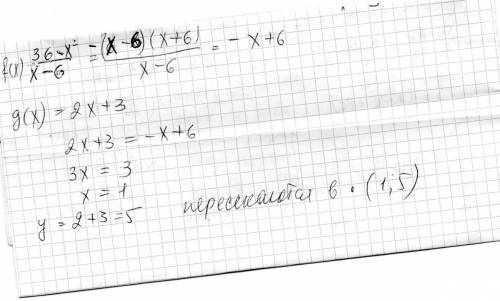 f(x) = (36-x²)/(x-6) = (x-6)(x+6)/(x-6) = -x+6
g(x) = 2x+3
2x+3 = -x+6
3x = 3
x = 1
y = 2+3=5
пересекаются в • (1;5)